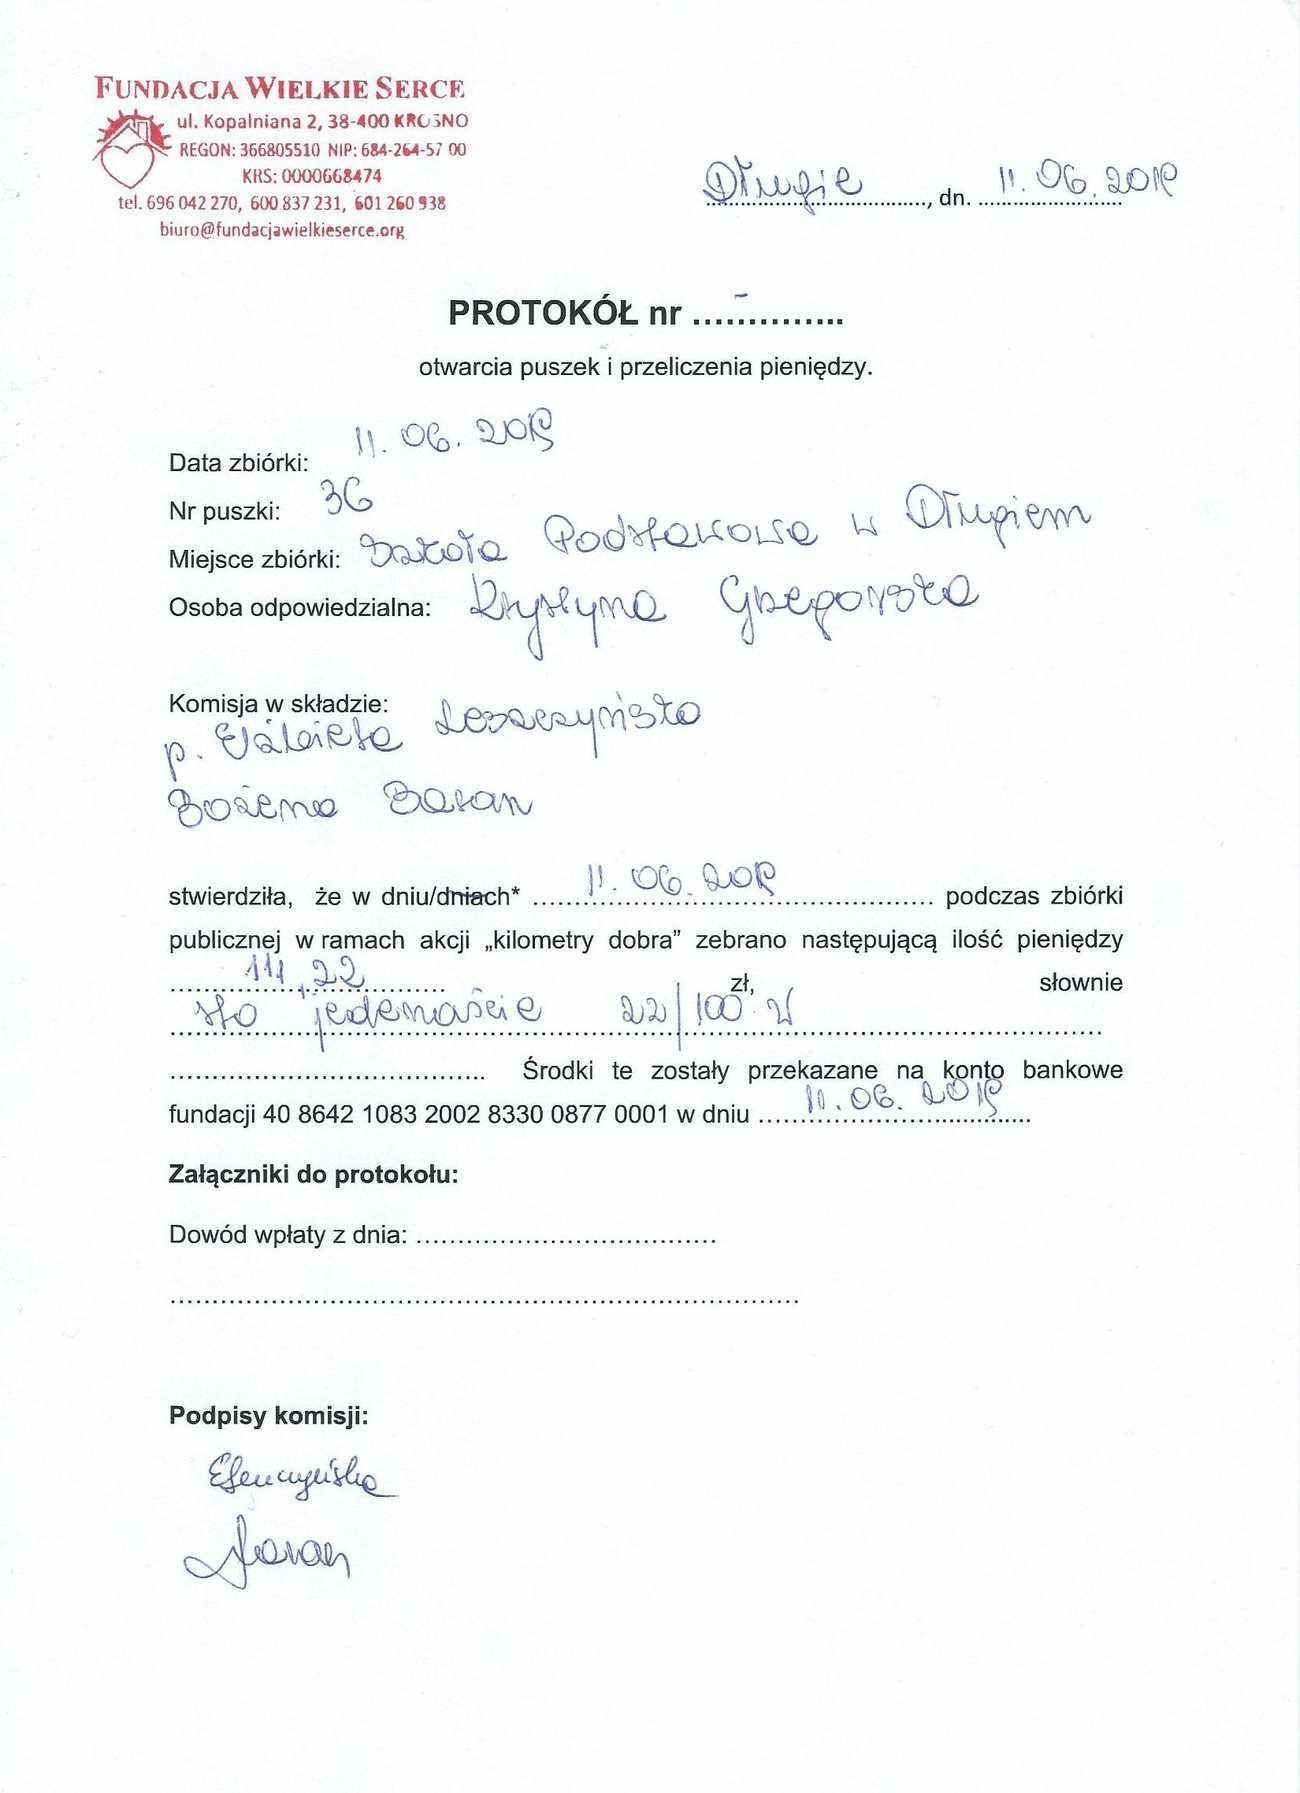 FUNDACJA WIELKIE SERCE
ul. Kopalniana 2, 38-400 KROSNO
REGON: 366805510 NIP: 684-264-57 00
KRS: 0000668474
tel. 696 042 270, 600 837 231, 601 260 938
biuro@fundacjawielkieserce.org
Długie, dn. 11.06.2019
PROTOKÓŁ nr .....-.........
otwarcia puszek i przeliczenia pieniędzy.
Data zbiórki: 11.06.2019
Nr puszki: 36
Miejsce zbiórki: Szkoła Podstawowa w Długiem
Osoba odpowiedzialna: Krystyna Grzegorska
Komisja w składzie:
p. Elżbieta Leszczyńska
Bożena Baran
stwierdziła, że w dniu/dniach* 11.06.2019 podczas zbiórki
publicznej w ramach akcji „kilometry dobra” zebrano następującą ilość pieniędzy
111,22 zł, słownie
sto jedenaście 22/100 zł
...................................... Środki te zostały przekazane na konto bankowe
fundacji 40 8642 1083 2002 8330 0877 0001 w dniu 11.06.2019
Załączniki do protokołu:
Dowód wpłaty z dnia: ....................................
...........................................................................
Podpisy komisji:
ELeszczyńska
Baran